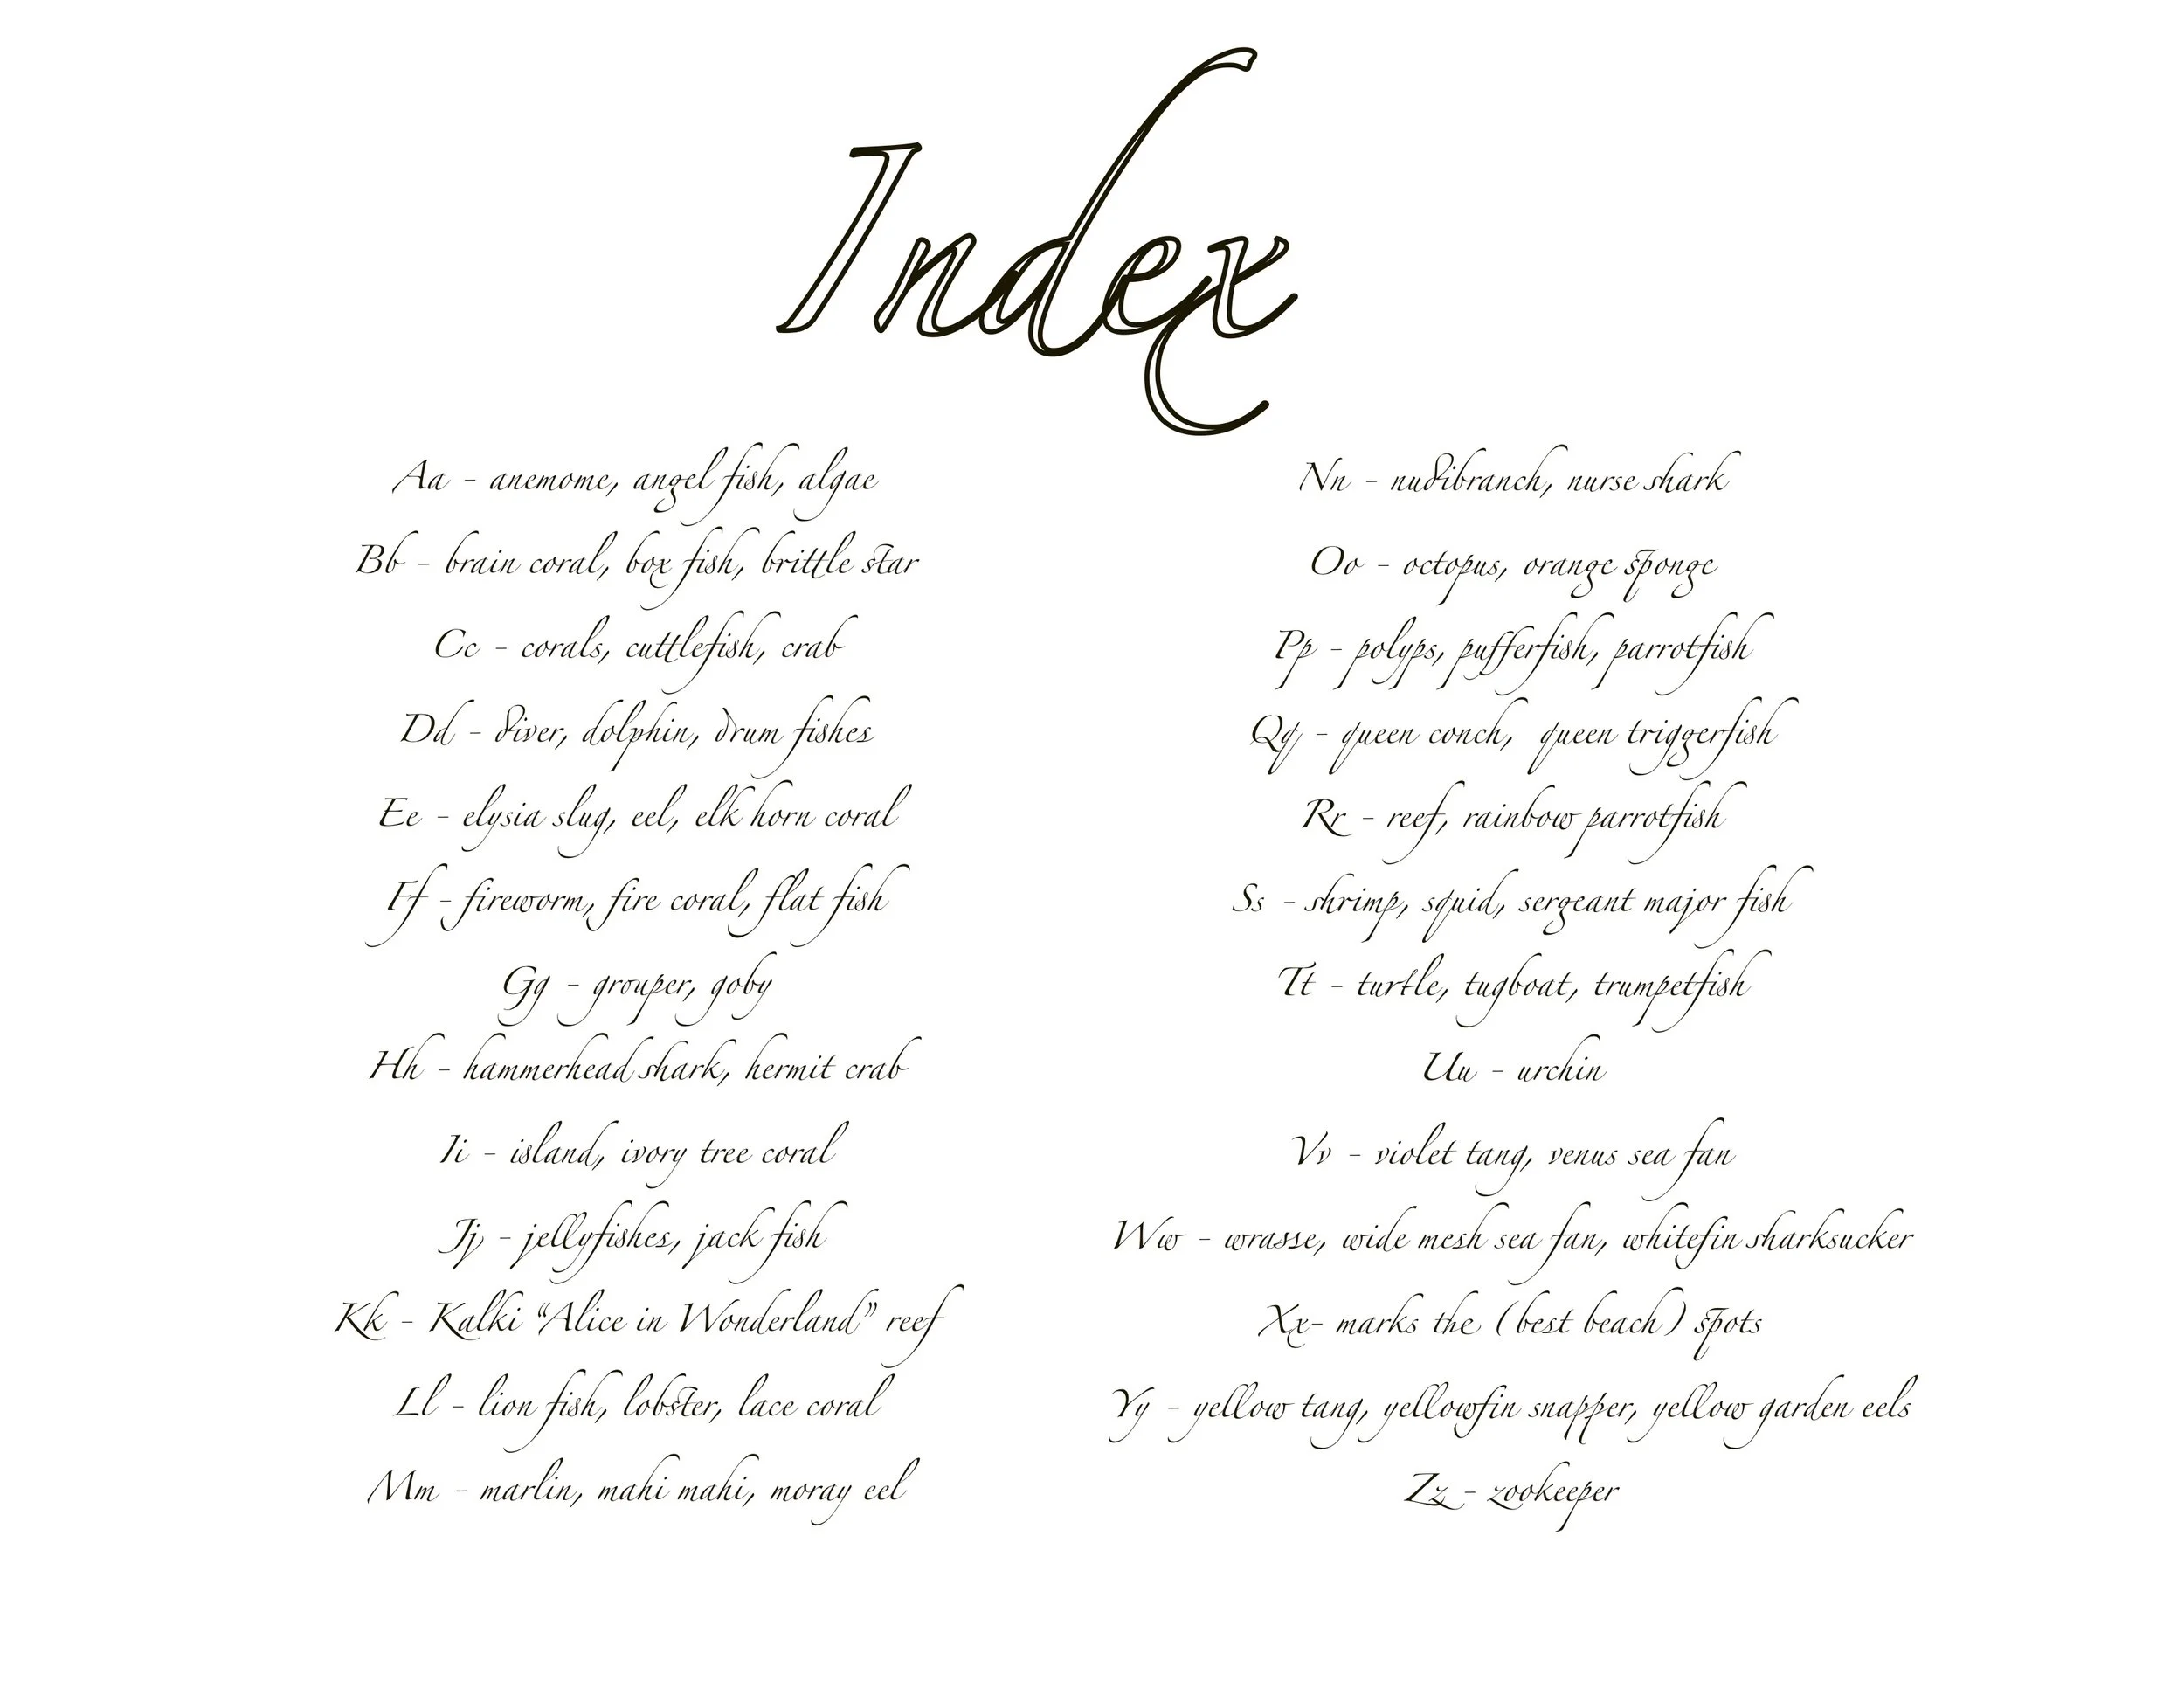 Index
Aa - anemome, angel fish, algae
Bb - brain coral, box fish, brittle star
Cc - corals, cuttlefish, crab
Dd - diver, dolphin, drum fishes
Ee - elysia slug, eel, elk horn coral
Ff - fireworm, fire coral, flat fish
Gg - grouper, goby
Hh - hammerhead shark, hermit crab
Ii - island, ivory tree coral
Jj - jellyfishes, jack fish
Kk - Kalki “Alice in Wonderland” reef
Ll - lion fish, lobster, lace coral
Mm - marlin, mahi mahi, moray eel
Nn - nudibranch, nurse shark
Oo - octopus, orange sponge
Pp - polyps, pufferfish, parrotfish
Qq - queen conch, queen triggerfish
Rr - reef, rainbow parrotfish
Ss - shrimp, squid, sergeant major fish
Tt - turtle, tugboat, trumpetfish
Uu - urchin
Vv - violet tang, venus sea fan
Ww - wrasse, wide mesh sea fan, whitefin sharksucker
Xx- marks the (best beach) spots
Yy - yellow tang, yellowfin snapper, yellow garden eels
Zz - zookeeper